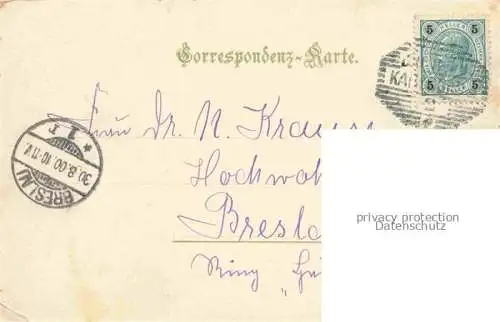 Correspondenz-Karte.
5 5
5 5
KAR
BRESLAU
30.8.00.10-11V.
* 1 r
Frau Dr. N. Kra
Hochwoh
Bresla
Ring
privacy protection
Datenschutz